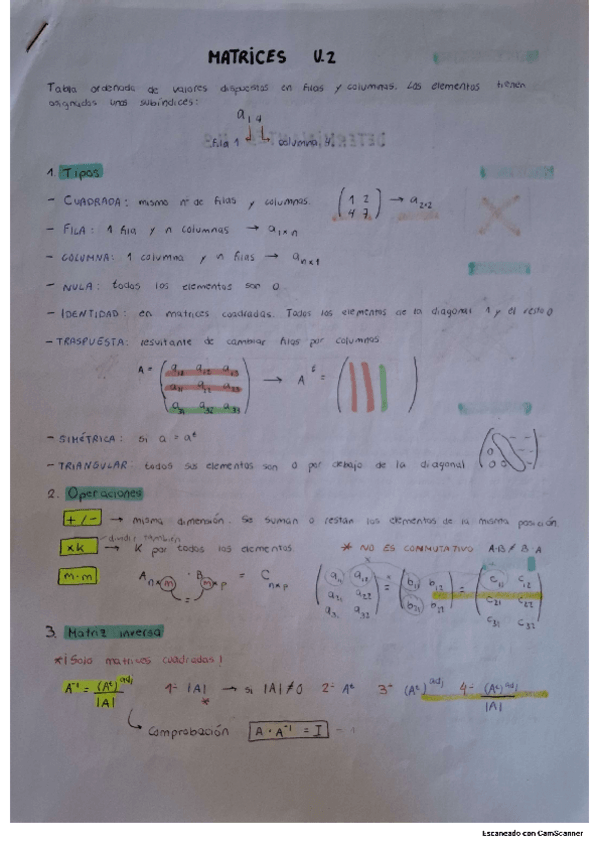 MATRICES U.2
Tabla ordenada de valores dispuestos en filas y columnas. Los elementos tienen
asignados unos subíndices:
a₁₄
fila 1 columna 4.
1. Tipos
- CUADRADA: mismo nº de filas y columnas. (1 2 → a₂ₓ₂
4 7)
- FILA: 1 fila y n columnas → a₁ₓₙ
- COLUMNA: 1 columna y n filas → aₙₓ₁
- NULA: todos los elementos son 0.
- IDENTIDAD: en matrices cuadradas. Todos los elementos de la diagonal 1 y el resto 0
- TRASPUESTA: resultante de cambiar filas por columnas.
A = (a₁₁ a₁₂ a₁₃ → Aᵗ = ( )
a₂₁ a₂₂ a₂₃
a₃₁ a₃₂ a₃₃)
- SIMÉTRICA: si a = aᵗ
- TRIANGULAR: todos sus elementos son 0 por debajo de la diagonal
2. Operaciones
+/- → misma dimensión. Se suman o restan los elementos de la misma posición.
dividir también
xk → K por todos los elementos. * NO ES CONMUTATIVO A·B ≠ B·A
m·m Aₙₓₘ · Bₘₓₚ = Cₙₓₚ (a₁₁ a₁₂ x (b₁₁ b₁₂ = (c₁₁ c₁₂
a₂₁ a₂₂ b₂₁ b₂₂) c₂₁ c₂₂
a₃₁ a₃₂) c₃₁ c₃₂)
=
3. Matriz inversa
*¡Solo matrices cuadradas!
A⁻¹ = (Aᵗ)ᵃᵈʲ / |A| 1º |A| → si |A| ≠ 0 2º Aᵗ 3º (Aᵗ)ᵃᵈʲ 4º (Aᵗ)ᵃᵈʲ / |A|
Comprobación A · A⁻¹ = I
Escaneado con CamScanner